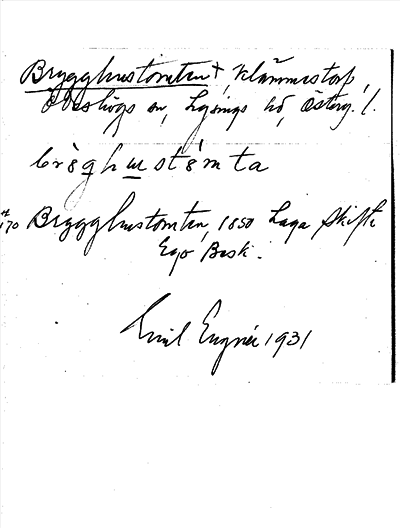 Brygghustomten +, Klämmestorp,
Ekeshögs sn, Lysings hd, Österg. l.
brèghustómta
170 Brygghustomten, 1850 Laga Skifte
Ego Besk.
Emil Eugnér 1931